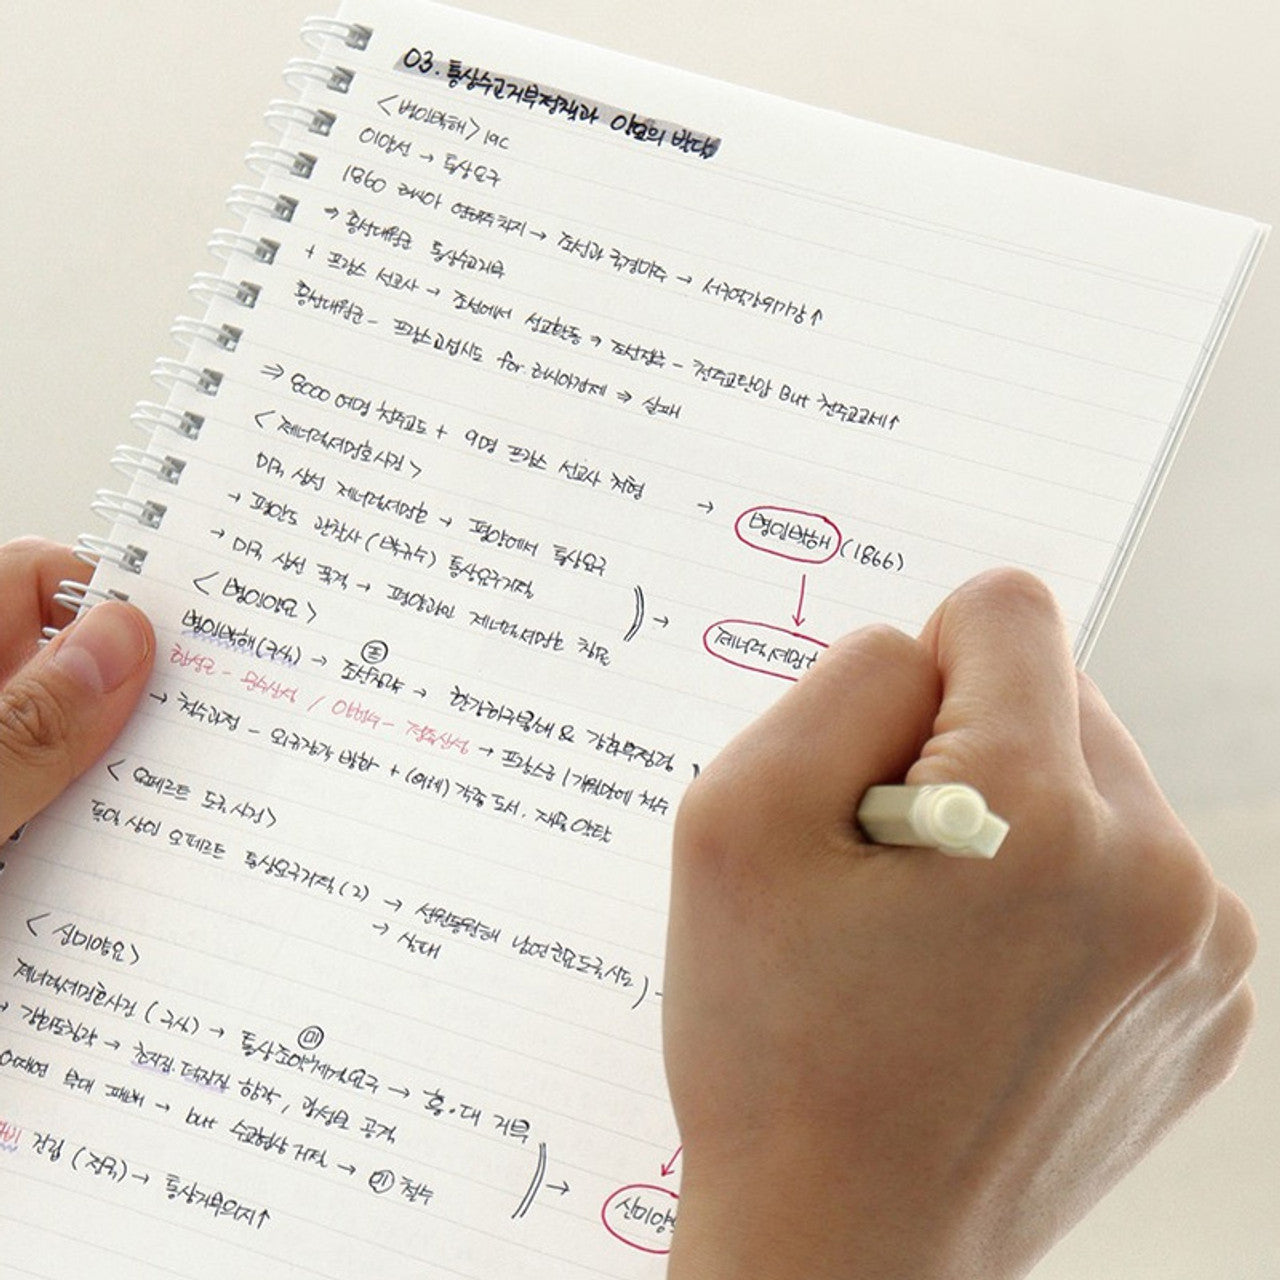 03. 통상수교거부정책과 양요의 발단
<병인박해> 19C
이양선 → 통상요구
1860 러시아 연해주 차지 → 조선과 국경마주 → 서구열강위기감↑
→ 흥선대원군 통상수교거부
+ 프랑스 선교사 → 조선에서 선교활동 → 조선정부 - 천주교탄압 But 천주교교세↑
흥선대원군 - 프랑스교섭시도 for 러시아견제 ⇒ 실패
⇒ 8000 여명 천주교도 + 9명 프랑스 선교사 처형 → 병인박해 (1866)
<제너럴셔먼호사건>
미국 상선 제너럴셔먼호 → 평양에서 통상요구
→ 평안도 관찰사 (박규수) 통상요구거절
→ 미국 상선 폭격 → 평양관민 제너럴셔먼호 침몰 → 제너럴셔먼
<병인양요>
병인박해(구실) → 프 조선침략 → 한강하구봉쇄 & 강화부점령
한성근 - 문수산성 / 양헌수 - 정족산성 → 프랑스군 1개월만에 철수
→ 철수과정 - 외규장각 방화 + (어헤) 각종 도서, 재물 약탈
<오페르트 도굴사건>
독일 상인 오페르트 통상요구거절 (2) → 선원동원해 남연군묘도굴시도
→ 실패
<신미양요>
제너럴셔먼호사건 (구실) → 미 통상조약체결요구 → 흥·대 거부
→ 강화도침략 → 초지진, 덕진진 함락, 광성보 공격
어재연 부대 패배 → but 수교협상 거절 → 미 철수
건립 (전국) → 통상거부의지↑
신미양